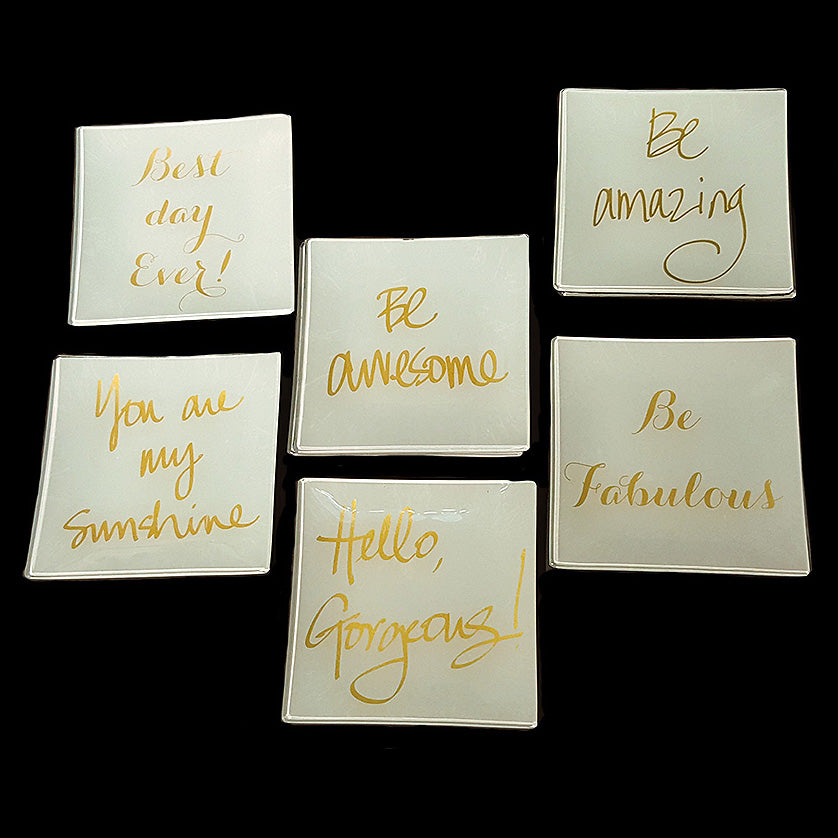 Best
day
Ever!
Be
amazing
Be
awesome
You are
my
sunshine
Be
Fabulous
Hello,
Gorgeous!